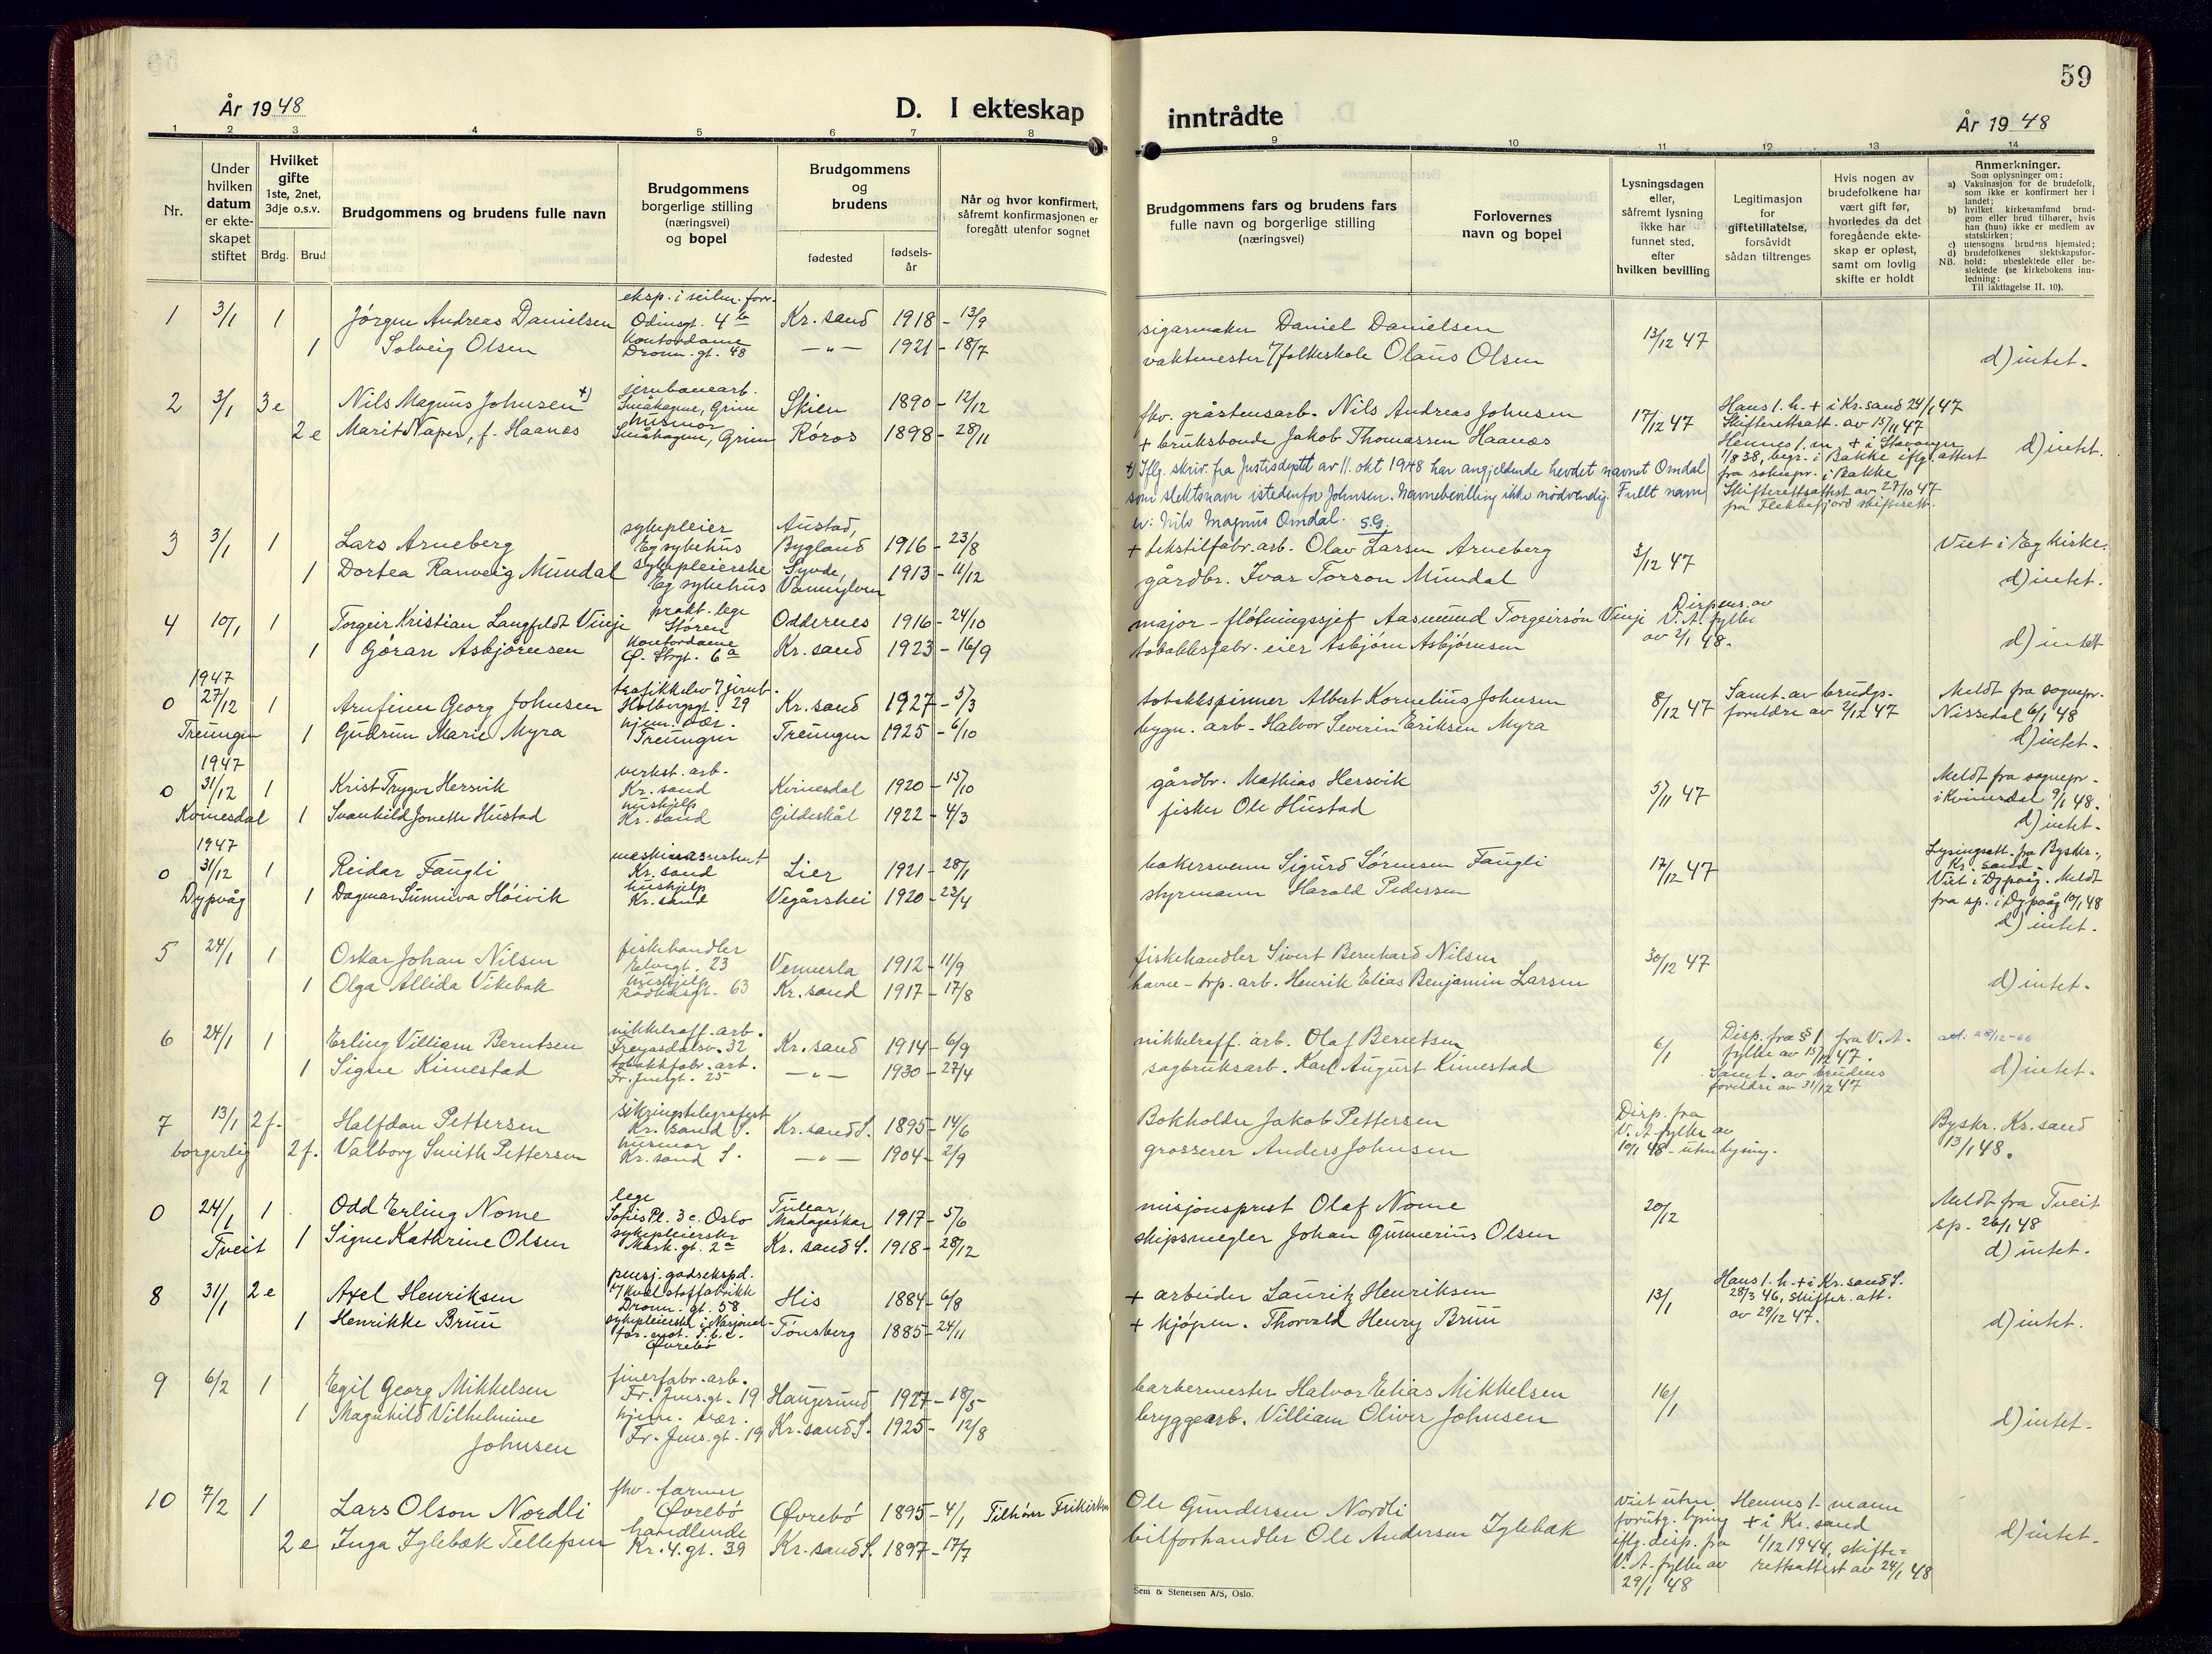 59
År 1948
D. I ekteskap inntrådte
År 1948
1 2 3 4 5 6 7 8 9 10 11 12 13 14
Nr.
Under hvilken datum er ekte-skapet stiftet
Hvilket gifte 1ste, 2net, 3dje o.s.v.
Brdg. Brud
Brudgommens og brudens fulle navn
Brudgommens borgerlige stilling (næringsvei) og bopel
Brudgommens og brudens
fødested
fødsels-år
Når og hvor konfirmert, såfremt konfirmasjonen er foregått utenfor sognet
Brudgommens fars og brudens fars fulle navn og borgerlige stilling (næringsvei)
Forlovernes navn og bopel
Lysningsdagen eller, såfremt lysning ikke har funnet sted, efter hvilken bevilling
Legitimasjon for giftetillatelse, forsåvidt sådan tiltrenges
Hvis nogen av brudefolkene har vært gift før, hvorledes da det foregående ekte-skap er opløst, samt om lovlig skifte er holdt
Anmerkninger.
Som oplysninger om:
a) Vaksinasjon for de brudefolk, som ikke er konfirmert her i landet;
b) hvilket kirkesamfund brud-gom eller brud tilhører, hvis han (hun) ikke er medlem av statskirken;
c) utensogns brudens hjemsted;
d) brudefolkenes slektskapsfor-hold: ubeslektede eller be-slektede (se kirkebokens inn-ledning:
NB.
Til iakttagelse II. 10).
1 3/1 1 Jörgen Andreas Danielsen eksp. i seilm. forr. Odinsgt. 4b Kr.sand 1918 - 13/9 sigarmaker Daniel Danielsen 13/12 47
1 Solveig Olsen kontordame Dronn. gt. 48 —"— 1921 - 18/7 vaktmester v/folkeskole Olaus Olsen d) intet.
2 3/1 3e Nils Magnus Johnsen +) jernbanearb. Småhagene, Grim Skien 1890 - 12/12 fhv. gråstensarb. Nils Andreas Johnsen 17/12 47 Hans 1. h. + i Kr.sand 24/1 47 Skifterettsatt. av 15/11 47
2e Marit Naper, f. Haanes husmor Småhagene, Grim Röros 1898 - 28/11 + bruksbonde Jakob Thomassen Haanes Hennes 1. m. + i Stavanger 1/8 38, begr. i Bakke iflg. attest fra soknepr. i Bakke. Skifterettsattest av 27/10 47 fra Flekkefjord skifterett. d) intet.
+) Iflg. skriv. fra Justisdeptet av 11. okt 1948 har angjeldende hevdet navnet Omdal
som slektsnavn istedenfor Johnsen. Navnebevilling ikke nödvendig. Fullt navn
er: Nils Magnus Omdal. S.G.
3 3/1 1 Lars Arneberg sykepleier Eg sykehus Austad, Bygland 1916 - 23/8 + tekstilfabr. arb. Olav Larsen Arneberg 3/12 47 Viet i Eg Kirke.
1 Dortea Ranveig Mundal sykepleierske Eg sykehus Syvde, Vannylven 1913 - 11/12 gårdbr. Ivar Torson Mundal d) intet.
4 10/1 1 Torgeir Kristian Langfeldt Vinje prakt. lege Stören Oddernes 1916 - 24/10 major - flötningssjef Aasmund Torgeirsön Vinje Dispens. av V. A. fylke av 2/1 48.
1 Göran Asbjörnsen kontordame Ö. Strgt. 6a Kr.sand 1923 - 16/9 tobakksfabr. eier Asbjörn Asbjörnsen d) intet
0 1947 27/12 1 Arnfinn Georg Johnsen trafikkelev v/jernb. Holbergsgt. 29 Kr.sand 1927 - 5/3 tobakkspinner Albert Kornelius Johnsen 8/12 47 Samt. av brudgs. foreldre av 2/12 47 Meldt fra sognepr. Nissedal 6/1 48
Treungen 1 Gudrun Marie Myra hjem. vær. Treungen Treungen 1925 - 6/10 bygn. arb. Halvor Severin Eriksen Myra d) intet.
0 1947 31/12 1 Krist Trygve Hersvik verkst. arb. Kr.sand Kvinesdal 1920 - 15/10 gårdbr. Mathias Hersvik 5/11 47 Meldt fra sognepr. i Kvinesdal 9/1 48.
Kvinesdal 1 Svanhild Jonette Hustad hushjelp Kr.sand Gildeskål 1922 - 4/3 fisker Ole Hustad d) intet.
0 1947 31/12 1 Reidar Faugli maskinassistent Kr.sand Lier 1921 - 28/1 bakersvenn Sigurd Sörensen Faugli 17/12 47 Lysingsatt. fra Byskr., Kr.sand. Viet i Dypvåg. Meldt fra sp. i Dypvåg 10/1 48
Dypvåg 1 Dagmar Sunniva Höivik hushjelp Kr.sand Vegårshei 1920 - 23/4 styrmann Harald Pedersen d) intet.
5 24/1 1 Oskar Johan Nilsen fiskehandler Elvegt. 23 Vennesla 1912 - 11/9 fiskehandler Sivert Bernhard Nilsen 30/12 47
1 Olga Allida Vikebak hushjelp Rådhusgt. 63 Kr.sand 1917 - 17/8 havne- trp. arb. Henrik Elias Benjamin Larsen d) intet.
6 24/1 1 Erling Villiam Berntsen nikkelraff. arb. Freyasdalsv. 32 Kr.sand 1914 - 6/9 nikkelraff. arb. Olaf Berntsen 6/1 Disp. fra § 1 fra V. A. fylke av 15/12 47. att. 28/12-66
1 Signe Kimestad tobakkfabr. arb. Fr. Jnsgt. 25 —"— 1930 - 27/4 sagbruksarb. Karl August Kimestad Samt. av brudens foreldre av 31/12 47 d) intet.
7 13/1 2f. Halfdan Pettersen sikringstelegrafist Kr.sand S. Kr.sand S. 1895 - 14/6 Bokholder Jakob Pettersen Disp. fra V. A. fylke av 10/1 48 - uten lysing. Byskr. Kr.sand 13/1 48.
borgerlig 2f. Valborg Smith Pettersen husmor Kr.sand S. —"— 1904 - 2/9 grosserer Anders Johnsen
0 24/1 1 Odd Erling Nome lege Sofies Pl. 3c. Oslo Tulear, Madagaskar 1917 - 5/6 misjonsprest Olaf Nome 20/12 Meldt fra Tveit sp. 26/1 48
Tveit 1 Signe Kathrine Olsen sykepleierske Mark. gt. 2a Kr.sand S. 1918 - 28/12 skipsmegler Johan Gunnerius Olsen d) intet.
8 31/1 2e Axel Henriksen pensj. godsekspd. v/ kvelstoffabrikk Dronn. gt. 58 His 1884 - 6/8 + arbeider Lauritz Henriksen 13/1 Hans 1. h. + i Kr.sand S. 28/3 46, skifter. att. av 29/12 47.
1 Henrikke Bruu sykepleierske i Nasjonal-for. mot. T.b.c. Øvrebö Tönsberg 1885 - 24/11 + kjöpm. Thorvald Henry Bruu d) intet.
9 6/2 1 Egil Georg Mikkelsen finerfabr. arb. Fr. Jns.gt. 19 Haugesund 1927 - 18/5 barbermester Halvor Elias Mikkelsen 16/1
1 Magnhild Vilhelmine Johnsen hjem. vær. Fr. Jns.gt. 19 Kr.sand S. 1925 - 12/8 bryggearb. Villiam Oliver Johnsen d) intet.
10 7/2 1 Lars Olson Nordli fhv. farmer Øvrebö Øvrebö 1895 - 4/1 Tilhörer Frikirken Ole Gundersen Nordli Viet uten forutg. lysing iflg. disp. fra V. A. fylke av 29/1 48
2e Inga Iglebæk Tellefsen handlende Kr. 4. gt. 39 Kr.sand S. 1897 - 17/7 bilforhandler Ole Andersen Iglebæk Hennes 1. mann + i Kr.sand 1/12 1944, skifte-rettsattest av 24/1 48 d) intet.
Sem & Stenersen A/S, Oslo.